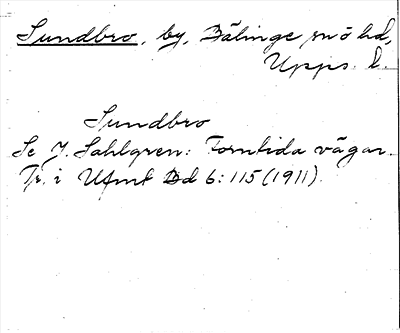 Sundbro, by, Bälinge sn o hd,
Upps. l.
Sundbro
Se J. Sahlgren: Forntida vägar.
Tr. i Ufmt Bd 6:115 (1911).